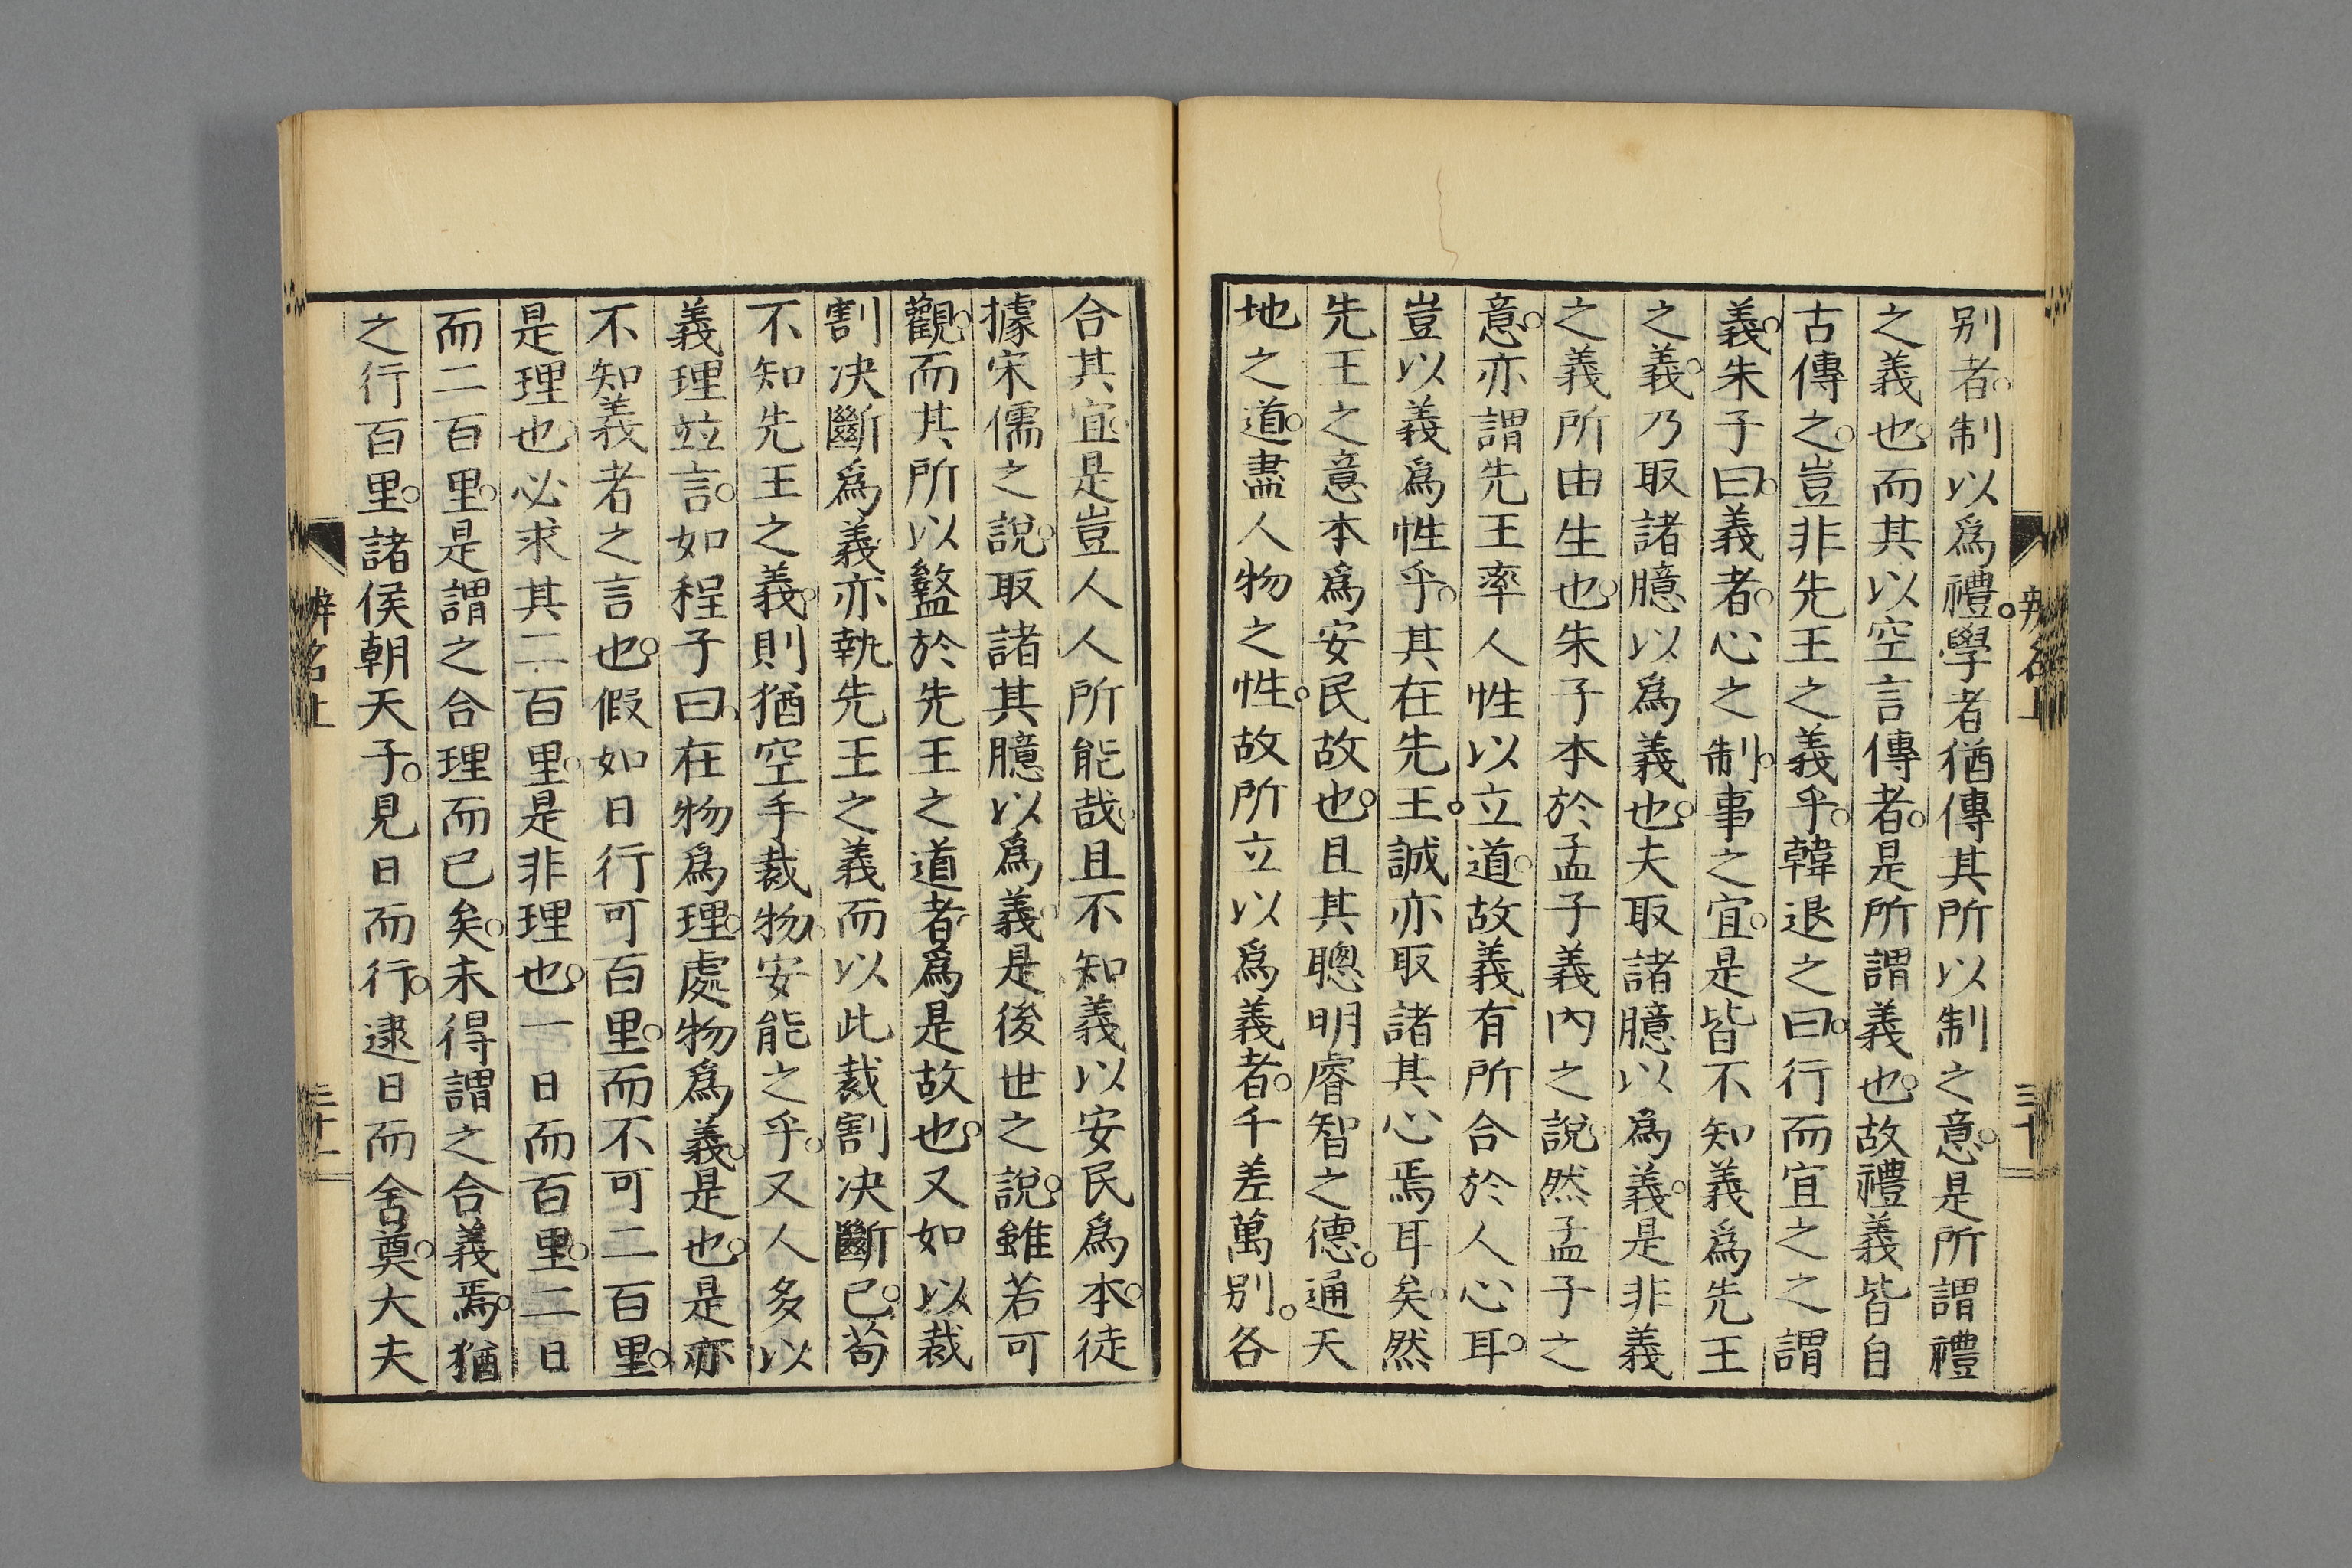 别者。制以爲禮。學者猶傳其所以制之意。是所謂禮
之義也。而其以空言傳者。是所謂義也。故禮義皆自
古傳之。豈非先王之義乎。韓退之曰。行而宜之之謂
義。朱子曰。義者。心之制。事之宜。是皆不知義爲先王
之義。乃取諸臆以爲義也。夫取諸臆以爲義。是非義
之義所由生也。朱子本於孟子義内之說。然孟子之
意。亦謂先王率人性以立道。故義有所合於人心耳。
豈以義爲性乎。其在先王。誠亦取諸其心焉耳矣。然
先王之意本爲安民故也。且其聰明睿智之德。通天
地之道。盡人物之性。故所立以爲義者。千差萬别。各
辨名上
三十
合其宜。是豈人人所能哉。且不知義以安民爲本。徒
據宋儒之說。取諸其臆以爲義。是後世之說。雖若可
觀。而其所以盭於先王之道者。爲是故也。又如以裁
割决斷爲義。亦執先王之義而以此裁割决斷已。苟
不知先王之義。則猶空手裁物。安能之乎。又人多以
義理竝言。如程子曰。在物爲理。處物爲義。是也。是亦
不知義者之言也。假如日行可百里。而不可二百里。
是理也。必求其二百里。是非理也。一日而百里。二日
而二百里。是謂之合理而已矣。未得謂之合義焉。猶
之行百里。諸侯朝天子。見日而行。逮日而舍奠。大夫
辨名上
三十一